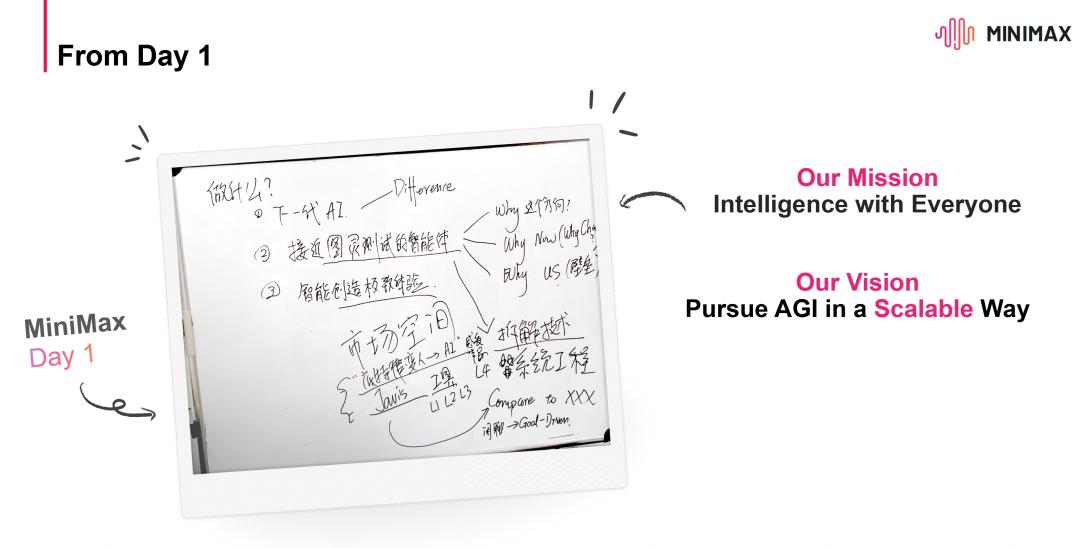 From Day 1
MINIMAX
做什么?
① 下一代 AI.
Difference
② 接近图灵测试的智能体
Why 这个方向?
Why Now (Why
Why US (壁垒
③ 智能创造极致体验.
市场空间
拆解技术
系统工程
Jarvis
工具
L1 L2 L3
L4
Compare to XXX
闲聊 → Goal-Driven.
MiniMax
Day 1
Our Mission
Intelligence with Everyone
Our Vision
Pursue AGI in a Scalable Way